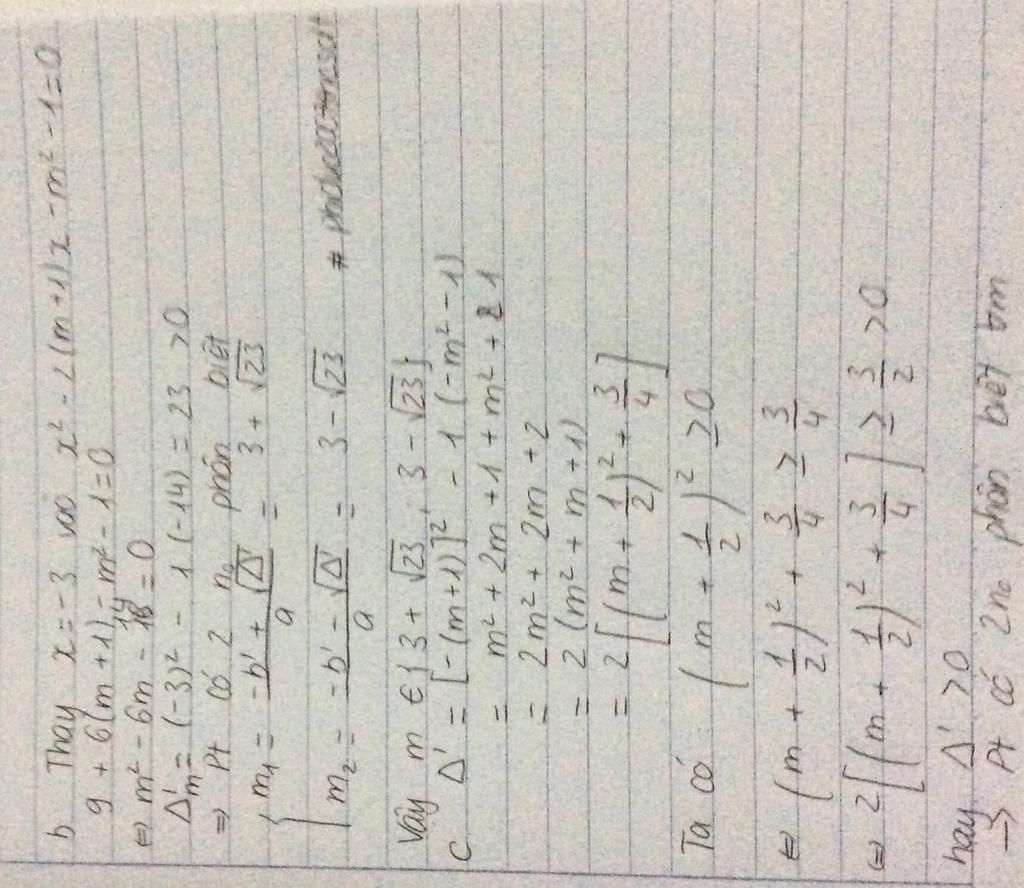 b Thay x = -3 vào x² - 2(m+1)x - m² - 1 = 0
9 + 6(m+1) - m² - 1 = 0
⇔ m² - 6m - 14 = 0
Δ'm = (-3)² - 1(-14) = 23 > 0
⇒ Pt có 2 no phân biệt
{ m₁ = (-b' + √Δ')/a = 3 + √23
m₂ = (-b' - √Δ')/a = 3 - √23 #
Vậy m ∈ {3 + √23; 3 - √23}
c Δ' = [-(m+1)]² - 1(-m² - 1)
= m² + 2m + 1 + m² + 1
= 2m² + 2m + 2
= 2(m² + m + 1)
= 2[(m + 1/2)² + 3/4]
Ta có (m + 1/2)² ≥ 0
⇔ (m + 1/2)² + 3/4 ≥ 3/4
⇔ 2[(m + 1/2)² + 3/4] ≥ 3/2 > 0
hay Δ' > 0
→ Pt có 2 no phân biệt ∀m